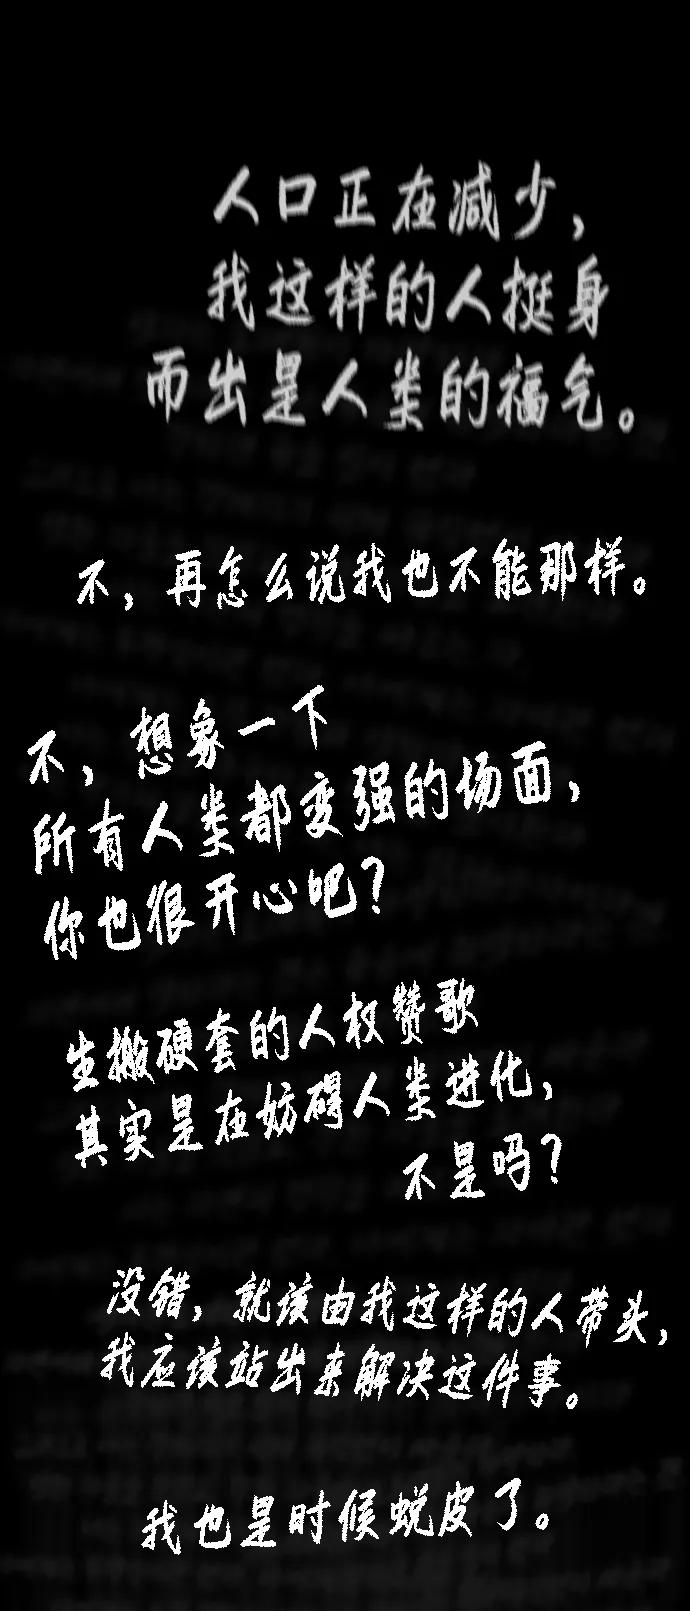 人口正在减少，
我这样的人挺身
而出是人类的福气。
不，再怎么说我也不能那样。
不，想象一下
所有人类都变强的场面，
你也很开心吧？
生搬硬套的人权赞歌
其实是在妨碍人类进化，
不是吗？
没错，就该由我这样的人带头，
我应该站出来解决这件事。
我也是时候蜕皮了。